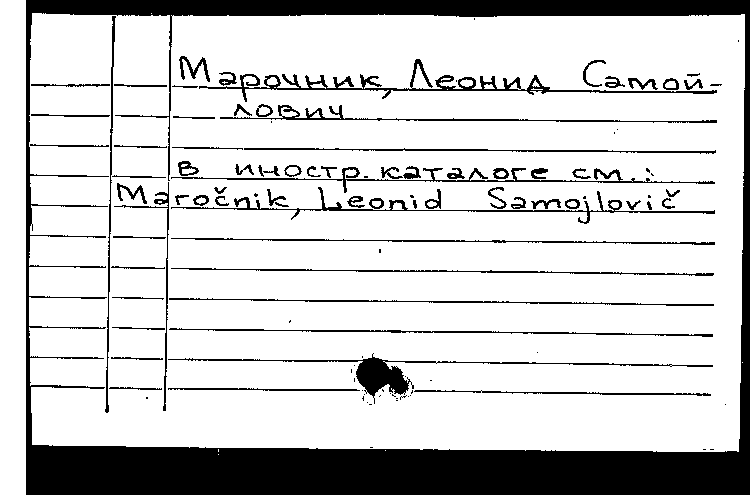 Марочник, Леонид Самой-
лович
в иностр. каталоге см.:
Maročnik, Leonid Samojlovič